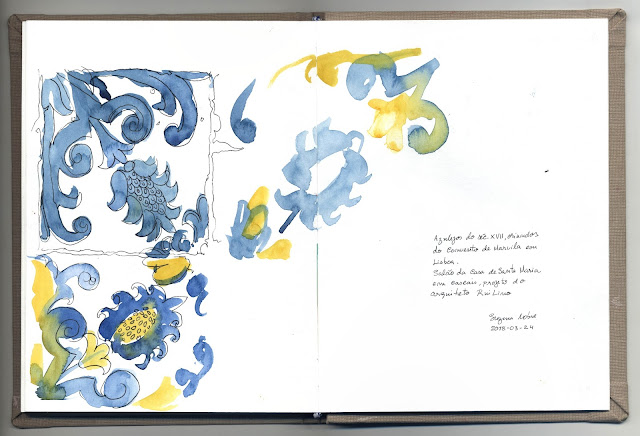 Azulejos do séc XVII, oriundos
do Convento de Marvila em
Lisboa.
Salão da Casa de Santa Maria
em Cascais, projeto do
arquiteto Raúl Lino
2018-03-24